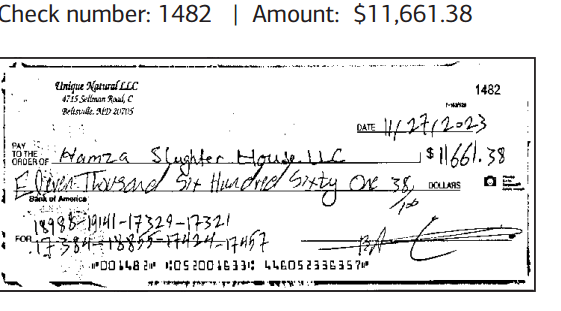 Check number: 1482 | Amount: $11,661.38
Unique Natural LLC
4715 Sellman Road, C
Beltsville, MD 20705
1482
DATE 11/27/2023
PAY TO THE ORDER OF Hamza Slughter House LLC $ 11661.38
Eleven Thousand Six Hundred Sixty One 38/100 DOLLARS
Bank of America
18988-19141-17329-17321
FOR 17384-18855-17424-17457
⑈001482⑈ ⑆052001633⑆ 446052336357⑈